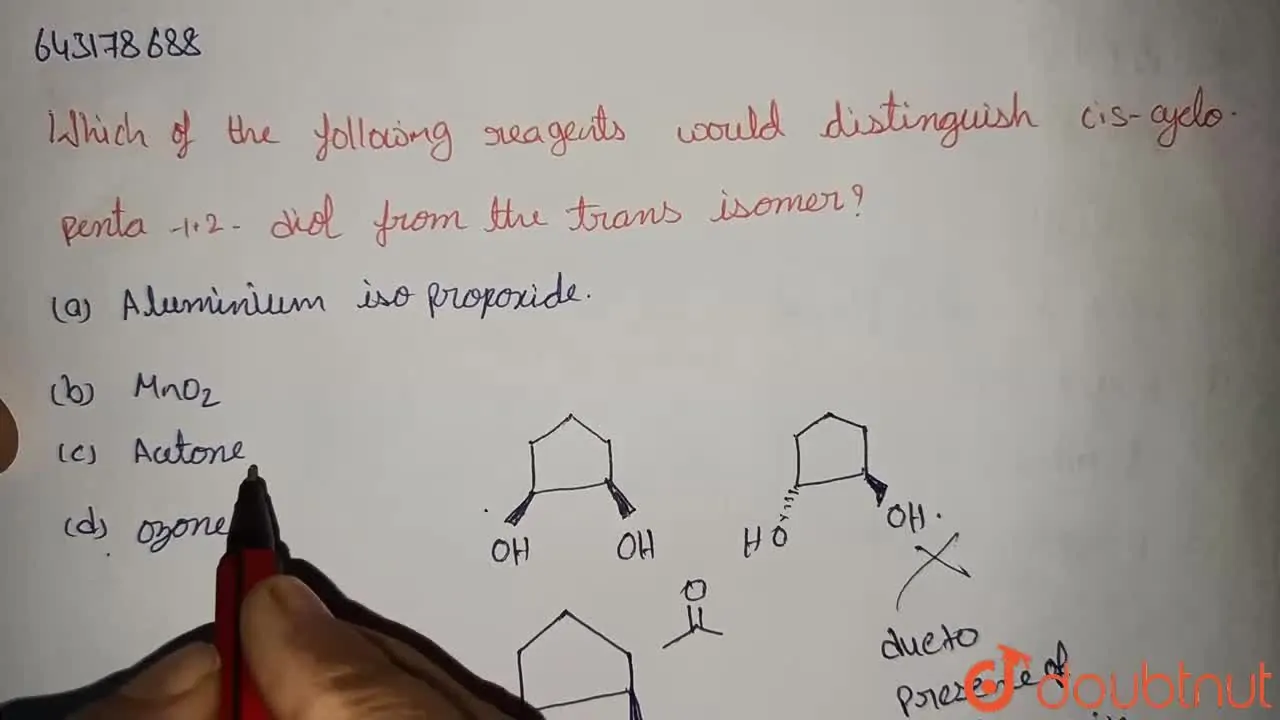 643178688
Which of the following reagents would distinguish cis-cyclo-
penta -1,2- diol from the trans isomer?
(a) Aluminium iso propoxide.
(b) MnO2
(c) Acetone
(d) Ozone
OH OH
HO OH
O
due to
presence of
doubtnut